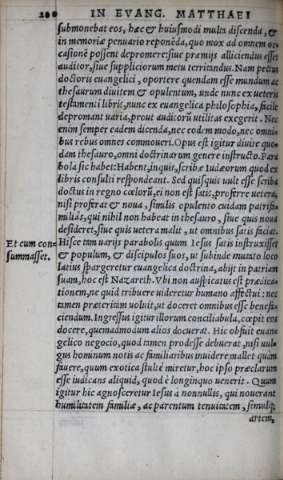 200 IN EVANG. MATTHAEI
submonebat eos, hæc & huiusmodi multa discenda, &
in memoriæ penuario reponēda, quo mox ad omnem oc-
casionē possent depromere: siue præmijs alliciendus esset
auditor, siue suppliciorum metu territandus. Nam pectus
doctoris euangelici, oportere quendam esse mundum ac
thesaurum diuitem & opulentum, unde nunc ex ueteris
testamenti libris, nunc ex euangelica philosophia, facile
depromant uaria, prout auditorū utilitas exegerit. Nec
enim semper eadem dicenda, nec eodem modo, nec omni-
bus rebus omnes commoueri. Opus est igitur diuite quo-
dam thesauro, omni doctrinarum genere instructo. Para
bola sic habet: Habent, inquit, scribæ Iudæorum quod ex
libris consulti respondeant. Sed quisquis uult esse scriba
doctus in regno cœlorū, ei non est satis, proferre uetera,
nisi proferat & noua, similis opulento cuidam patrifa-
miliâs, qui nihil non habeat in thesauro, siue quis noua
desideret, siue quis uetera malit, ut omnibus satis faciat.
Et cum con= Hisce tam uarijs parabolis quum Iesus satis instruxisset
summasset. & populum, & discipulos suos, ut subinde mutato loco
latius spargeretur euangelica doctrina, abijt in patriam
suam, hoc est Nazareth. Vbi non auspicatus est prædica-
tionem, ne quid tribuere uideretur humano affectui: nec
tamen præterire uoluit, ut doceret omnibus esse benefa-
ciendum. Ingressus igitur illorum conciliabula, cœpit eos
docere, quemadmodum alios docuerat. Hic obfuit euan-
gelico negocio, quod tamen prodesse debuerat, nisi uul-
gus hominum notis ac familiaribus inuidere mallet quàm
fauere, quum exotica stulte miretur, hoc ipso præclarum
esse iudicans aliquid, quod è longinquo uenerit. Quum
igitur hic agnosceretur Iesus à nonnullis, qui nouerant
humilitatem familiæ, ac parentum tenuitatem, simulq;
artem,